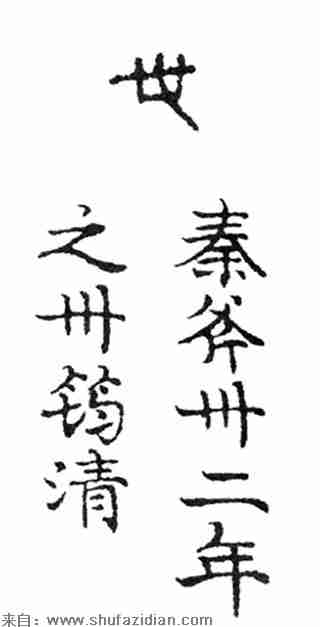 秦斧卅二年
之卅筠清
来自：www.shufazidian.com